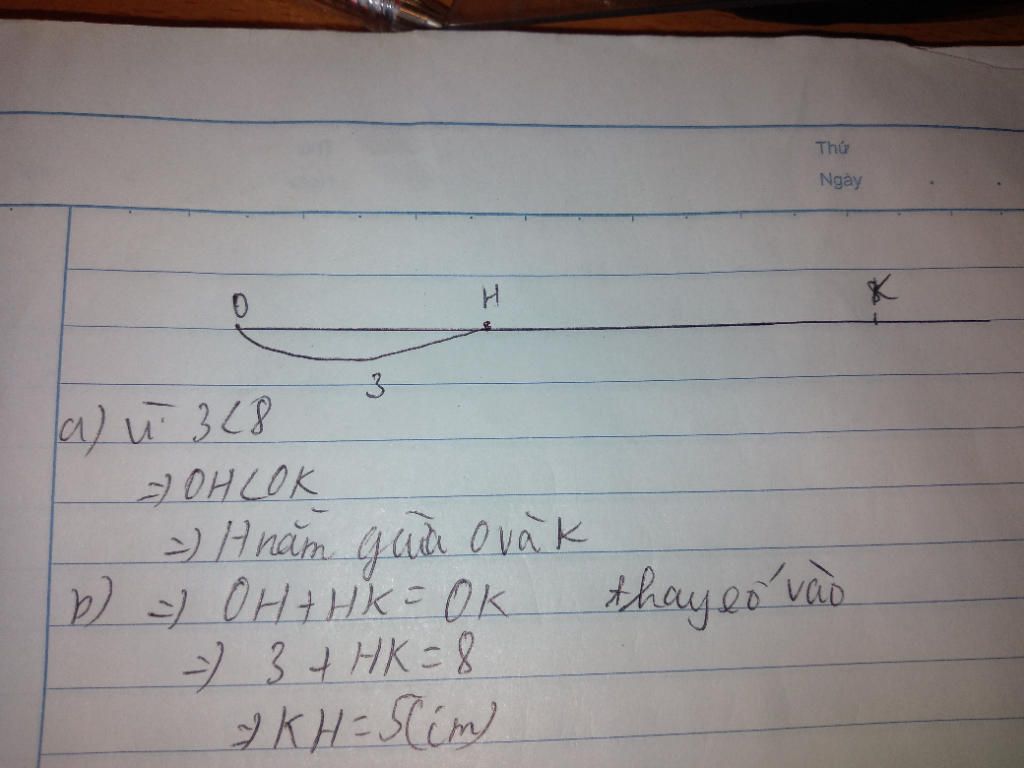 Thứ
Ngày
O H K
3
a) Vì 3<8
=> OH<OK
=> H nằm giữa O và K
b) => OH+HK= OK thay số vào
=> 3 + HK = 8
=> KH = 5(cm)